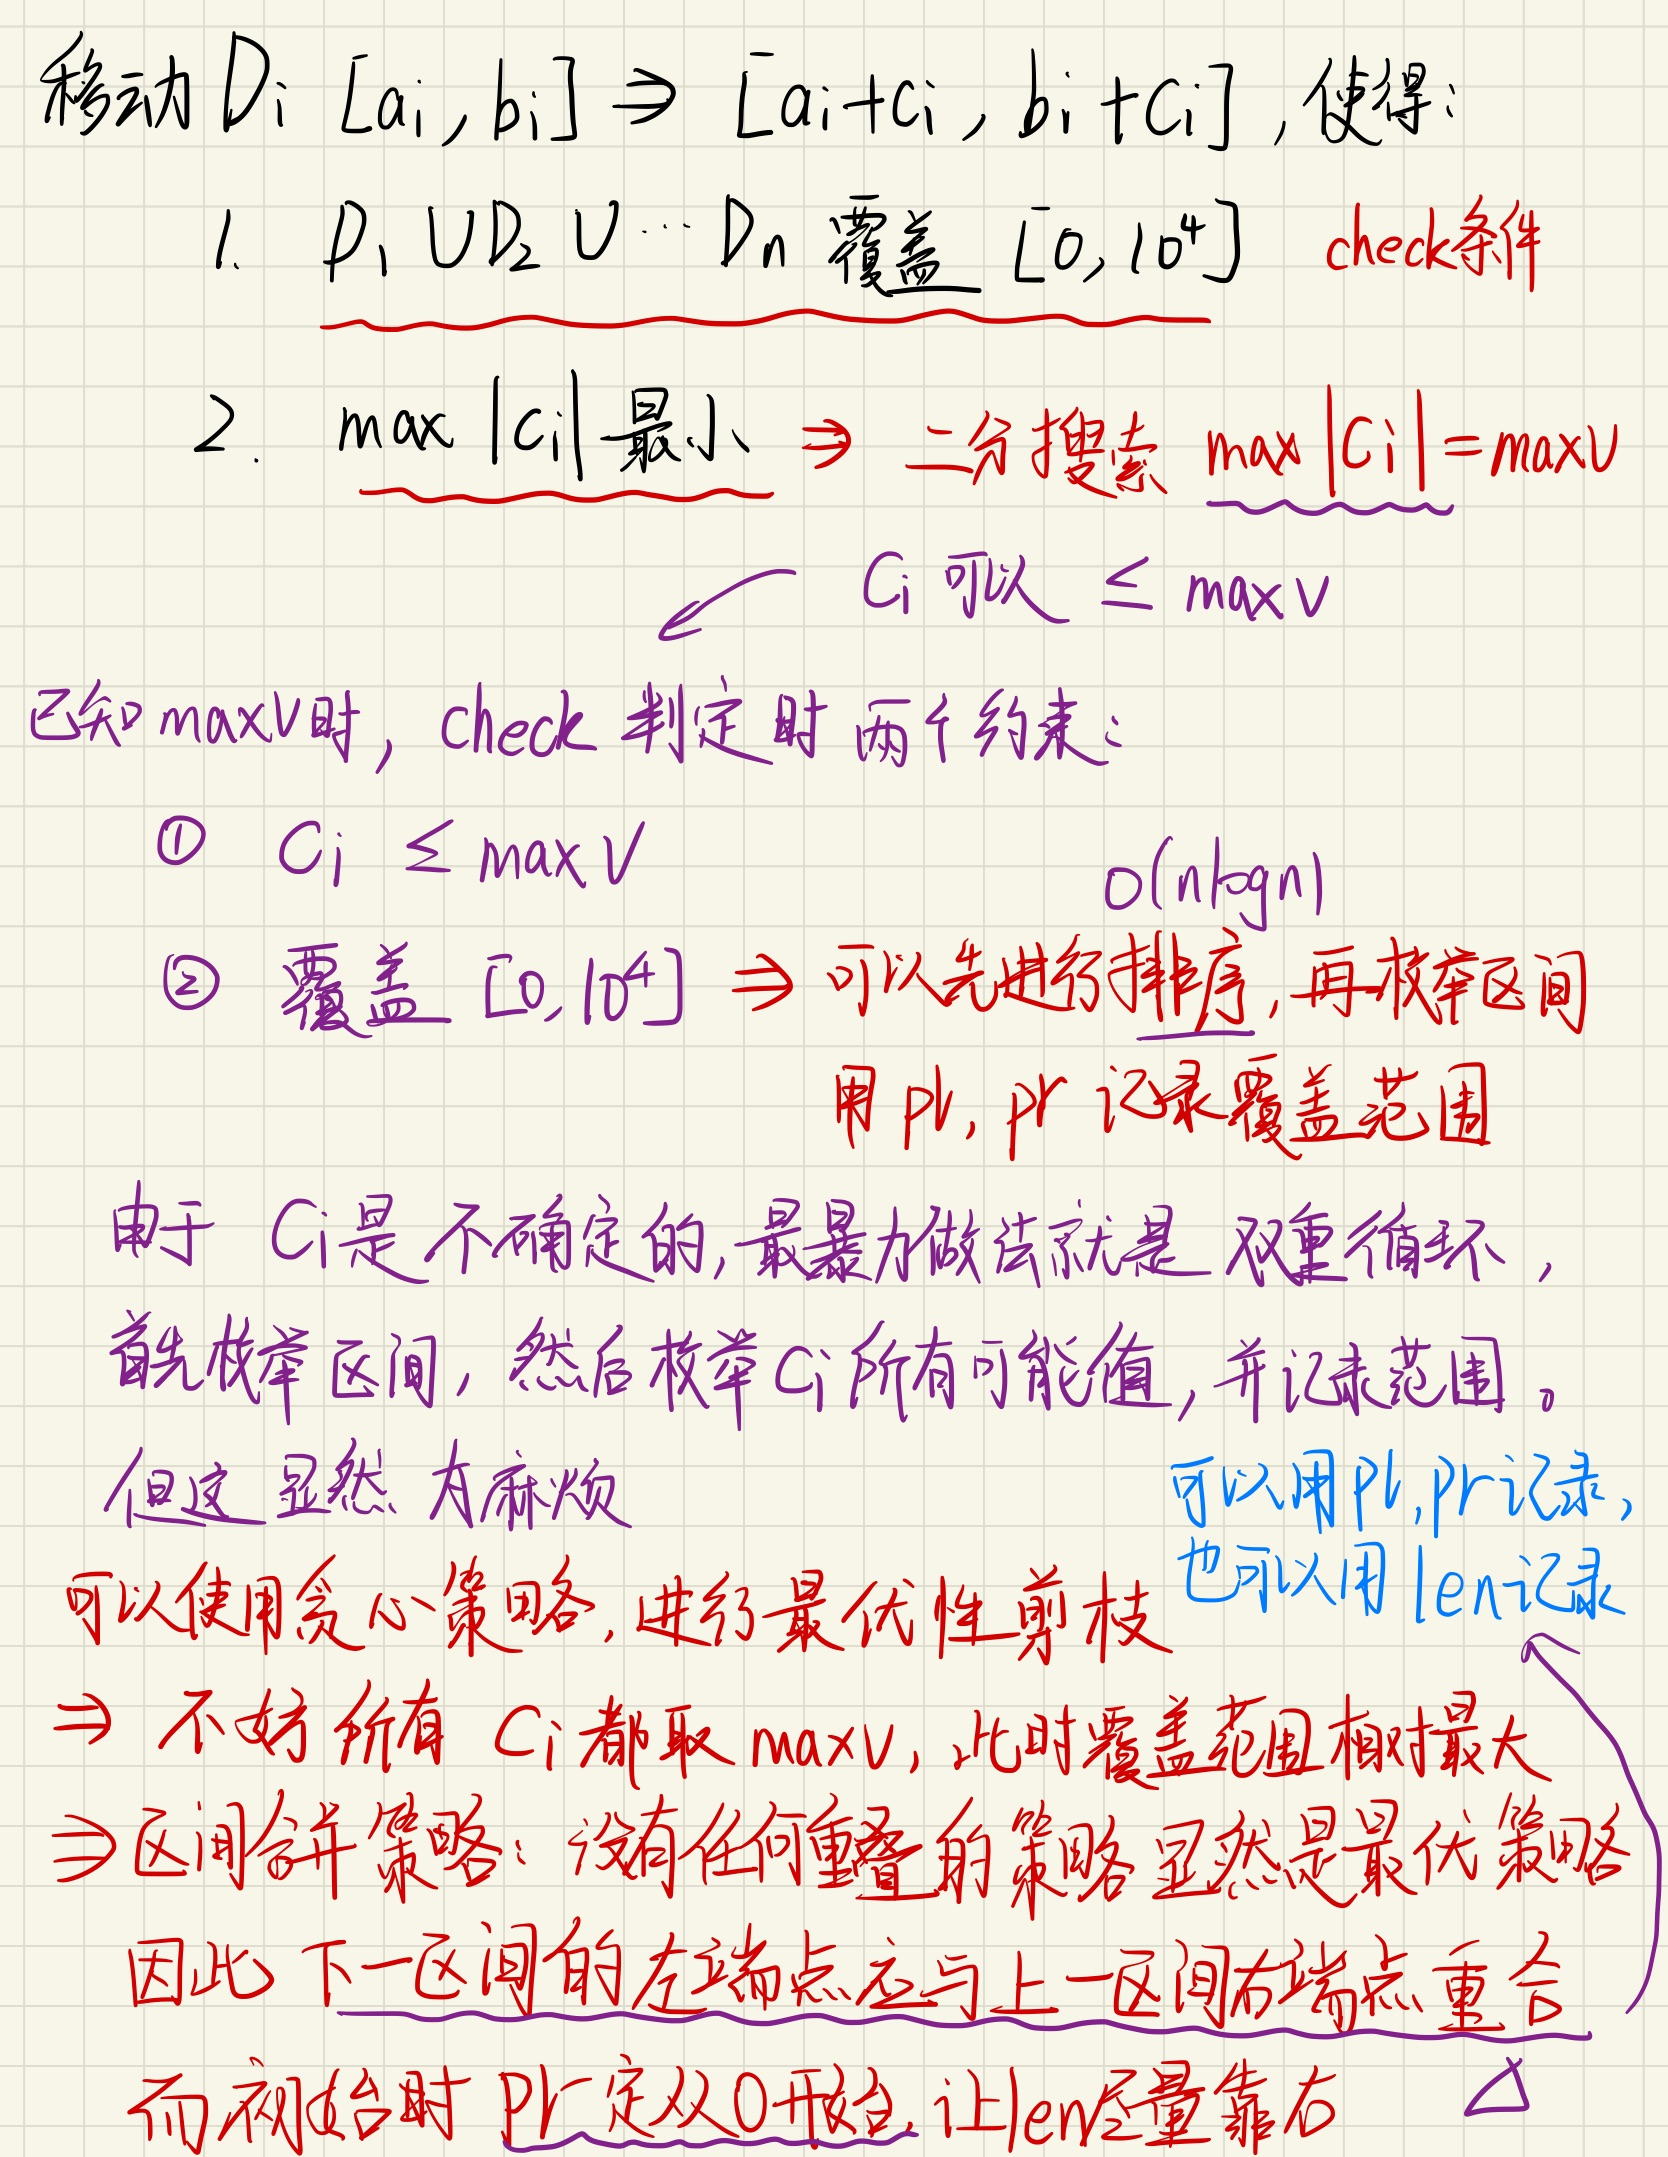 移动 Di [ai, bi] ⇒ [ai+ci, bi+ci], 使得:
1. D1 ∪ D2 ∪ … Dn 覆盖 [0, 10⁴] check条件
2. max |ci| 最小 ⇒ 二分搜索 max |Ci| = maxv
Ci 可以 ≤ maxv
已知 maxV时, check 判定时 两个约束:
① Ci ≤ maxV
O(nlogn)
② 覆盖 [0, 10⁴] ⇒ 可以先进行排序, 再枚举区间
用 pl, pr 记录覆盖范围
由于 Ci是不确定的, 最暴力做法就是 双重循环,
首先枚举区间, 然后枚举Ci所有可能值, 并记录范围。
但这显然太麻烦
可以用pl, pr记录,
也可以用len记录
可以使用贪心策略, 进行最优性剪枝
⇒ 不妨所有 Ci都取 maxv, 此时覆盖范围相对最大
⇒ 区间合并策略: 没有任何重叠的策略显然是最优策略
因此 下一区间的左端点应与上一区间右端点重合
而初始时 pr定义0开始, 让len尽量靠右